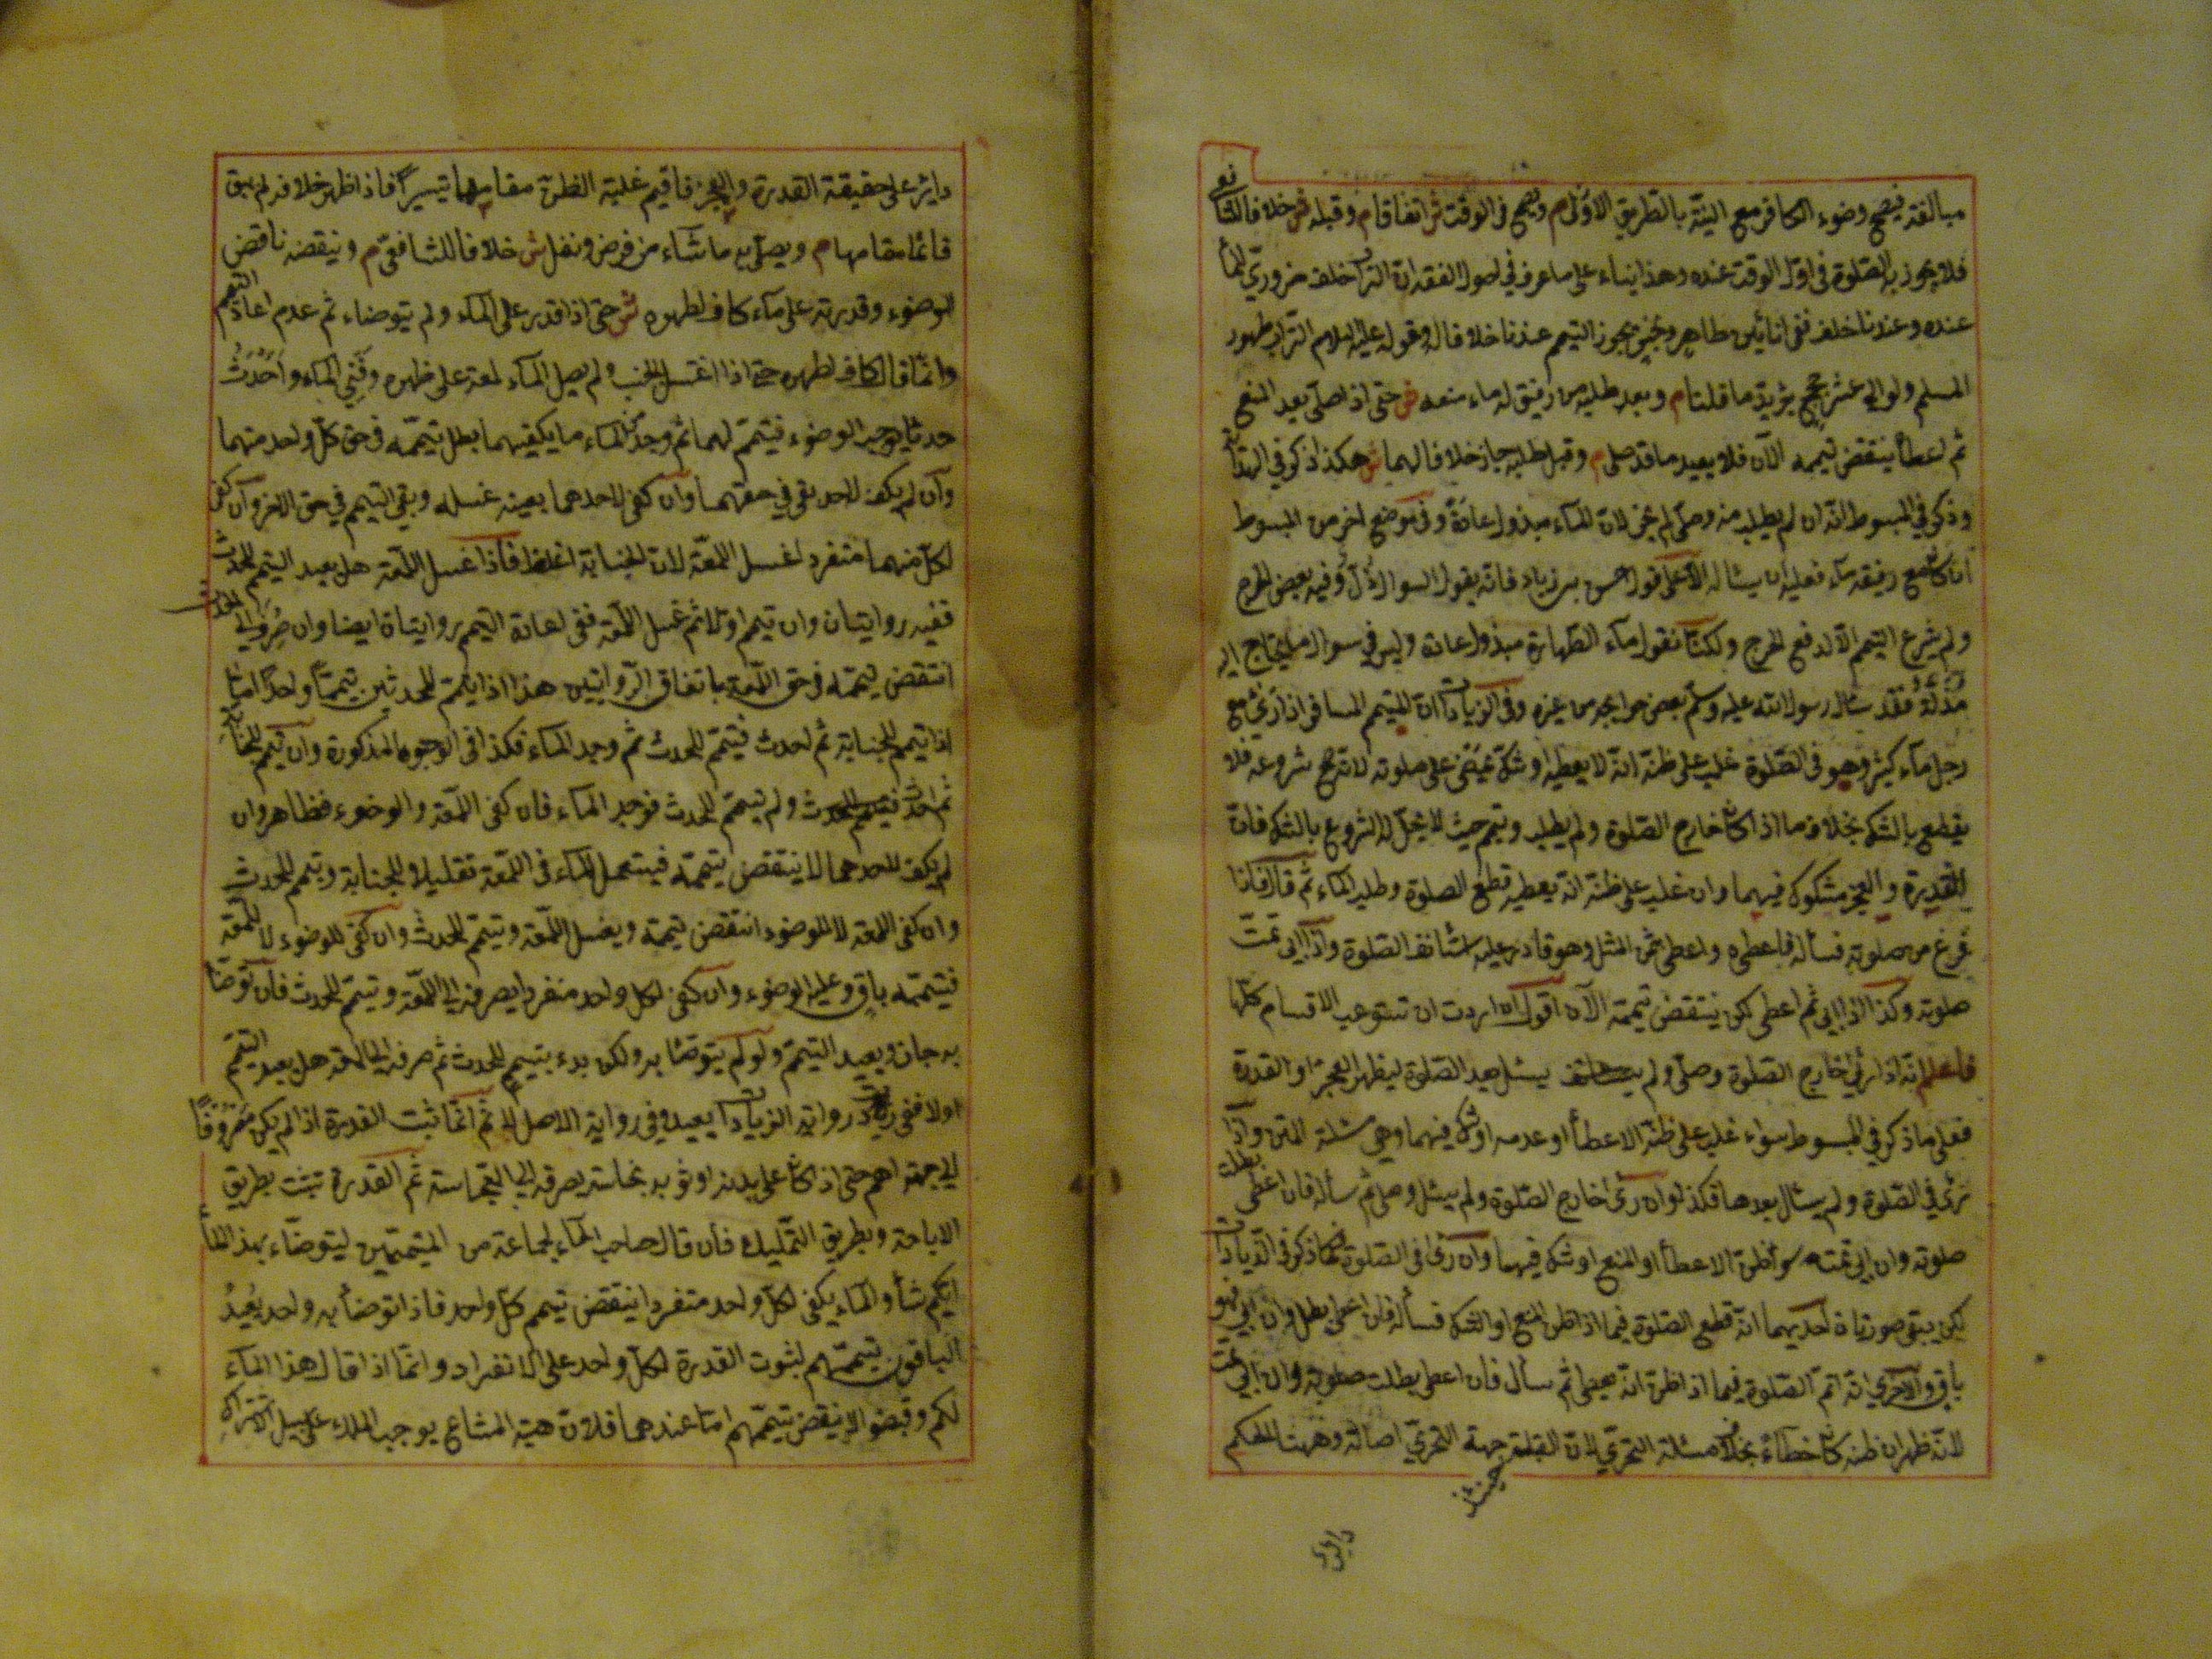 مبالغة فيصح وضوء الكافر مع النية بالطريق الاولى م ويصح فى الوقت ش اتفاقا م وقبله ش خلافا للشافعى
فلا يجوز به الصلوة فى اول الوقت عنده وهذا بناء على ما عرف فى اصول الفقه ان التراب خلف ضرورى للماء
عنده وعندنا خلف ففى انائين طاهر ونجس يجوز التيمم عندنا خلافا له وقوله عليه السلام التراب طهور
المسلم ولو الى عشر حجج يؤيد ما قلنا م وبعد طلبه من رفيق له ماء منعه ش حتى اذا صلى بعد المنع
ثم اعطاه ينتقض تيممه الآن فلا يعيد ما قد صلى م وقبل طلبه جاز خلافا لهما ش هكذا ذكر فى الهداية
وذكر فى المبسوط انه ان لم يطلب منه وصلى لم يجز لان الماء مبذول عادة وفى موضع اخر من المبسوط
ان كان مع رفيقه ماء فعليه ان يسئاله الا على قول حسن بن زياد فانه يقول السوال ذل وفيه بعض الحرج
ولم يشرع التيمم الا لدفع الحرج ولكنا نقول ماء الطهارة مبذول عادة وليس فى سوال ما يحتاج اليه
مذلة فقد سئال رسول الله عليه وسلم بعض حوايجه من غيره وفى الزيادات ان المتيمم المسافر اذا رئى مع
رجل ماء كثير وهو فى الصلوة غلب على ظنه انه لا يعطيه او شك يمضى على صلوته لانه صح شروعه فلا
يقطع بالشك بخلاف ما اذا كان خارج الصلوة ولم يطلب وتيمم حيث لا يحل له الشروع بالشك فان
القدرة والعجز مشكوك فيهما وان غلب على ظنه انه يعطيه قطع الصلوة وطلب الماء ثم قال فاذا
فرغ من صلوته فسأله فاعطاه واعطى ثمن المثل وهو قادر عليه استأنف الصلوة واذا ابى تمت
صلوته وكذا اذا ابى ثم اعطى لكن ينتقض تيممه الآن اقول ان اردت ان تستوعب الاقسام كلها
فاعلم انه اذا رئى خارج الصلوة وصلى ولم يسئل بعد الصلوة ليظهر العجز او القدرة
فعلى ما ذكر فى المبسوط سواء غلب على ظنه الاعطأ او عدمه او شك فيهما وهى مسئلة المتن واذا
رئى فى الصلوة ولم يسئال بعدها فكذا وان رئى خارج الصلوة ولم يسئل وصلى ثم سأله فان اعطى بطلت
صلوته وان ابى تمت سواء ظن الاعطأ او المنع او شك فيهما وان رئى فى الصلوة فكما ذكر فى الزيادات
لكن يبقى صورتان احديهما انه قطع الصلوة فيما اذا ظن المنع او الشك فسأله فان اعطى بطل وان ابى فهو
باق والاخرى انه اتم الصلوة فيما اذا ظن انه يعطى ثم سأل فان اعطى بطلت صلوته وان ابى تمت
لانه ظهر ان ظنه كان خطاء بخلاف مسئلة التحرى لان القبلة جهة التحرى اصالة وههنا الحكم
داير على حقيقة القدرة والعجز فاقيم غلبة الظن مقامهما تيسيرا فاذا ظهر خلافه لم يبق
قائما مقامهما م ويصلى به ما شاء من فرض ونفل ش خلافا للشافعى م وينقضه ناقض
الوضوء وقدرته على ماء كاف لطهره ش حتى اذا قدر على الماء ولم يتوضاء ثم عدم اعاد التيمم
وانما قال كاف لطهره حتى اذا اغتسل الجنب ولم يصل الماء لمعة على ظهره وفنى الماء واحدث
حدثا يوجب الوضوء فتيمم لهما ثم وجد من الماء ما يكفيهما بطل تيممه فى حق كل واحد منهما
وان لم يكف لاحد بقى فى حقهما وان كفى لاحدهما بعينه غسله وبقى التيمم فى حق الاخر وان كفى
لكل منهما منفردا غسل اللمعة لان الجنابة اغلظ فاذا غسل اللمعة هل يعيد التيمم للحدث
ففيه روايتان وان تيمم اولا ثم غسل اللمعة ففى اعادة التيمم روايتان ايضا وان صرف الى الحدث
انتقض تيممه فى حق اللمعة باتفاق الروايتين هذا اذا تيمم للحدثين تيمما واحدا اما
اذا تيمم للجنابة ثم احدث فتيمم للحدث ثم وجد الماء فكذا فى الوجوه المذكورة وان تيمم للجنابة
ثم احدث ولم تيمم للحدث فوجد الماء فان كفى اللمعة والوضوء فظاهر وان
لم يكف لاحدهما لا ينتقض تيممه فيستعمل الماء فى اللمعة تقليلا للجنابة وتيمم للحدث
وان كفى اللمعة لا للوضوء انتقض تيممه ويغسل اللمعة ويتيمم للحدث وان كفى للوضوء لا للمعة
فتيممه باق وعليه الوضوء وان كفى لكل واحد منفردا يصرفه الى اللمعة ويتيمم للحدث فان توضا
به جاز ويعيد التيمم ولو لم يتوضا به ولكن بدء بتيمم للحدث ثم صرفه الى اللمعة هل يعيد التيمم
اولا ففى رواية الزيادات يعيد وفى رواية الاصل لا ثم انما ثبت القدرة اذا لم يكن مصروفا
الى جهة اهم حتى اذا كان على بدنه او ثوبه نجاسة يصرفه الى النجاسة ثم القدرة تثبت بطريق
الاباحة وبطريق التمليك فان قال صاحب الماء لجماعة من المتيممين ليتوضاء بهذا الماء
ايكم شأ والماء يكفى لكل واحد منفردا ينتقض تيمم كل واحد فاذا توضأ به واحد يعيد
الباقون تيممهم لثبوت القدرة لكل واحد على الانفراد وانما اذا قال هذا الماء
لكم وقبضوا لا ينقض تيممهم اما عندهما فلان هبة المشاع يوجب الملك على سبيل الاشتراك